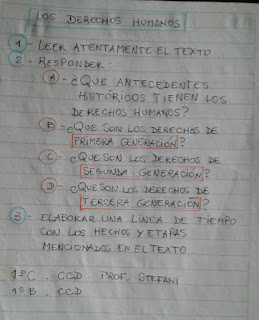 LOS DERECHOS HUMANOS
1 - LEER ATENTAMENTE EL TEXTO
2 - RESPONDER:
A - ¿QUE ANTECEDENTES
HISTÓRICOS TIENEN LOS
DERECHOS HUMANOS?
B - ¿QUE SON LOS DERECHOS DE
PRIMERA GENERACIÓN?
C - ¿QUE SON LOS DERECHOS DE
SEGUNDA GENERACIÓN?
D - ¿QUE SON LOS DERECHOS DE
TERCERA GENERACIÓN?
3 - ELABORAR UNA LÍNEA DE TIEMPO
CON LOS HECHOS Y ETAPAS
MENCIONADOS EN EL TEXTO
1º C. CCD PROF. STEFANI
1º B. CCD